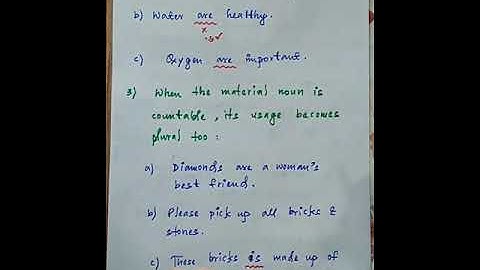 b) Water are healthy.
x
is ✓
c) Oxygen are important.
3) When the material noun is
countable, its usage becomes
plural too :
a) Diamonds are a woman's
best friend.
b) Please pick up all bricks &
stones.
c) These bricks is made up of